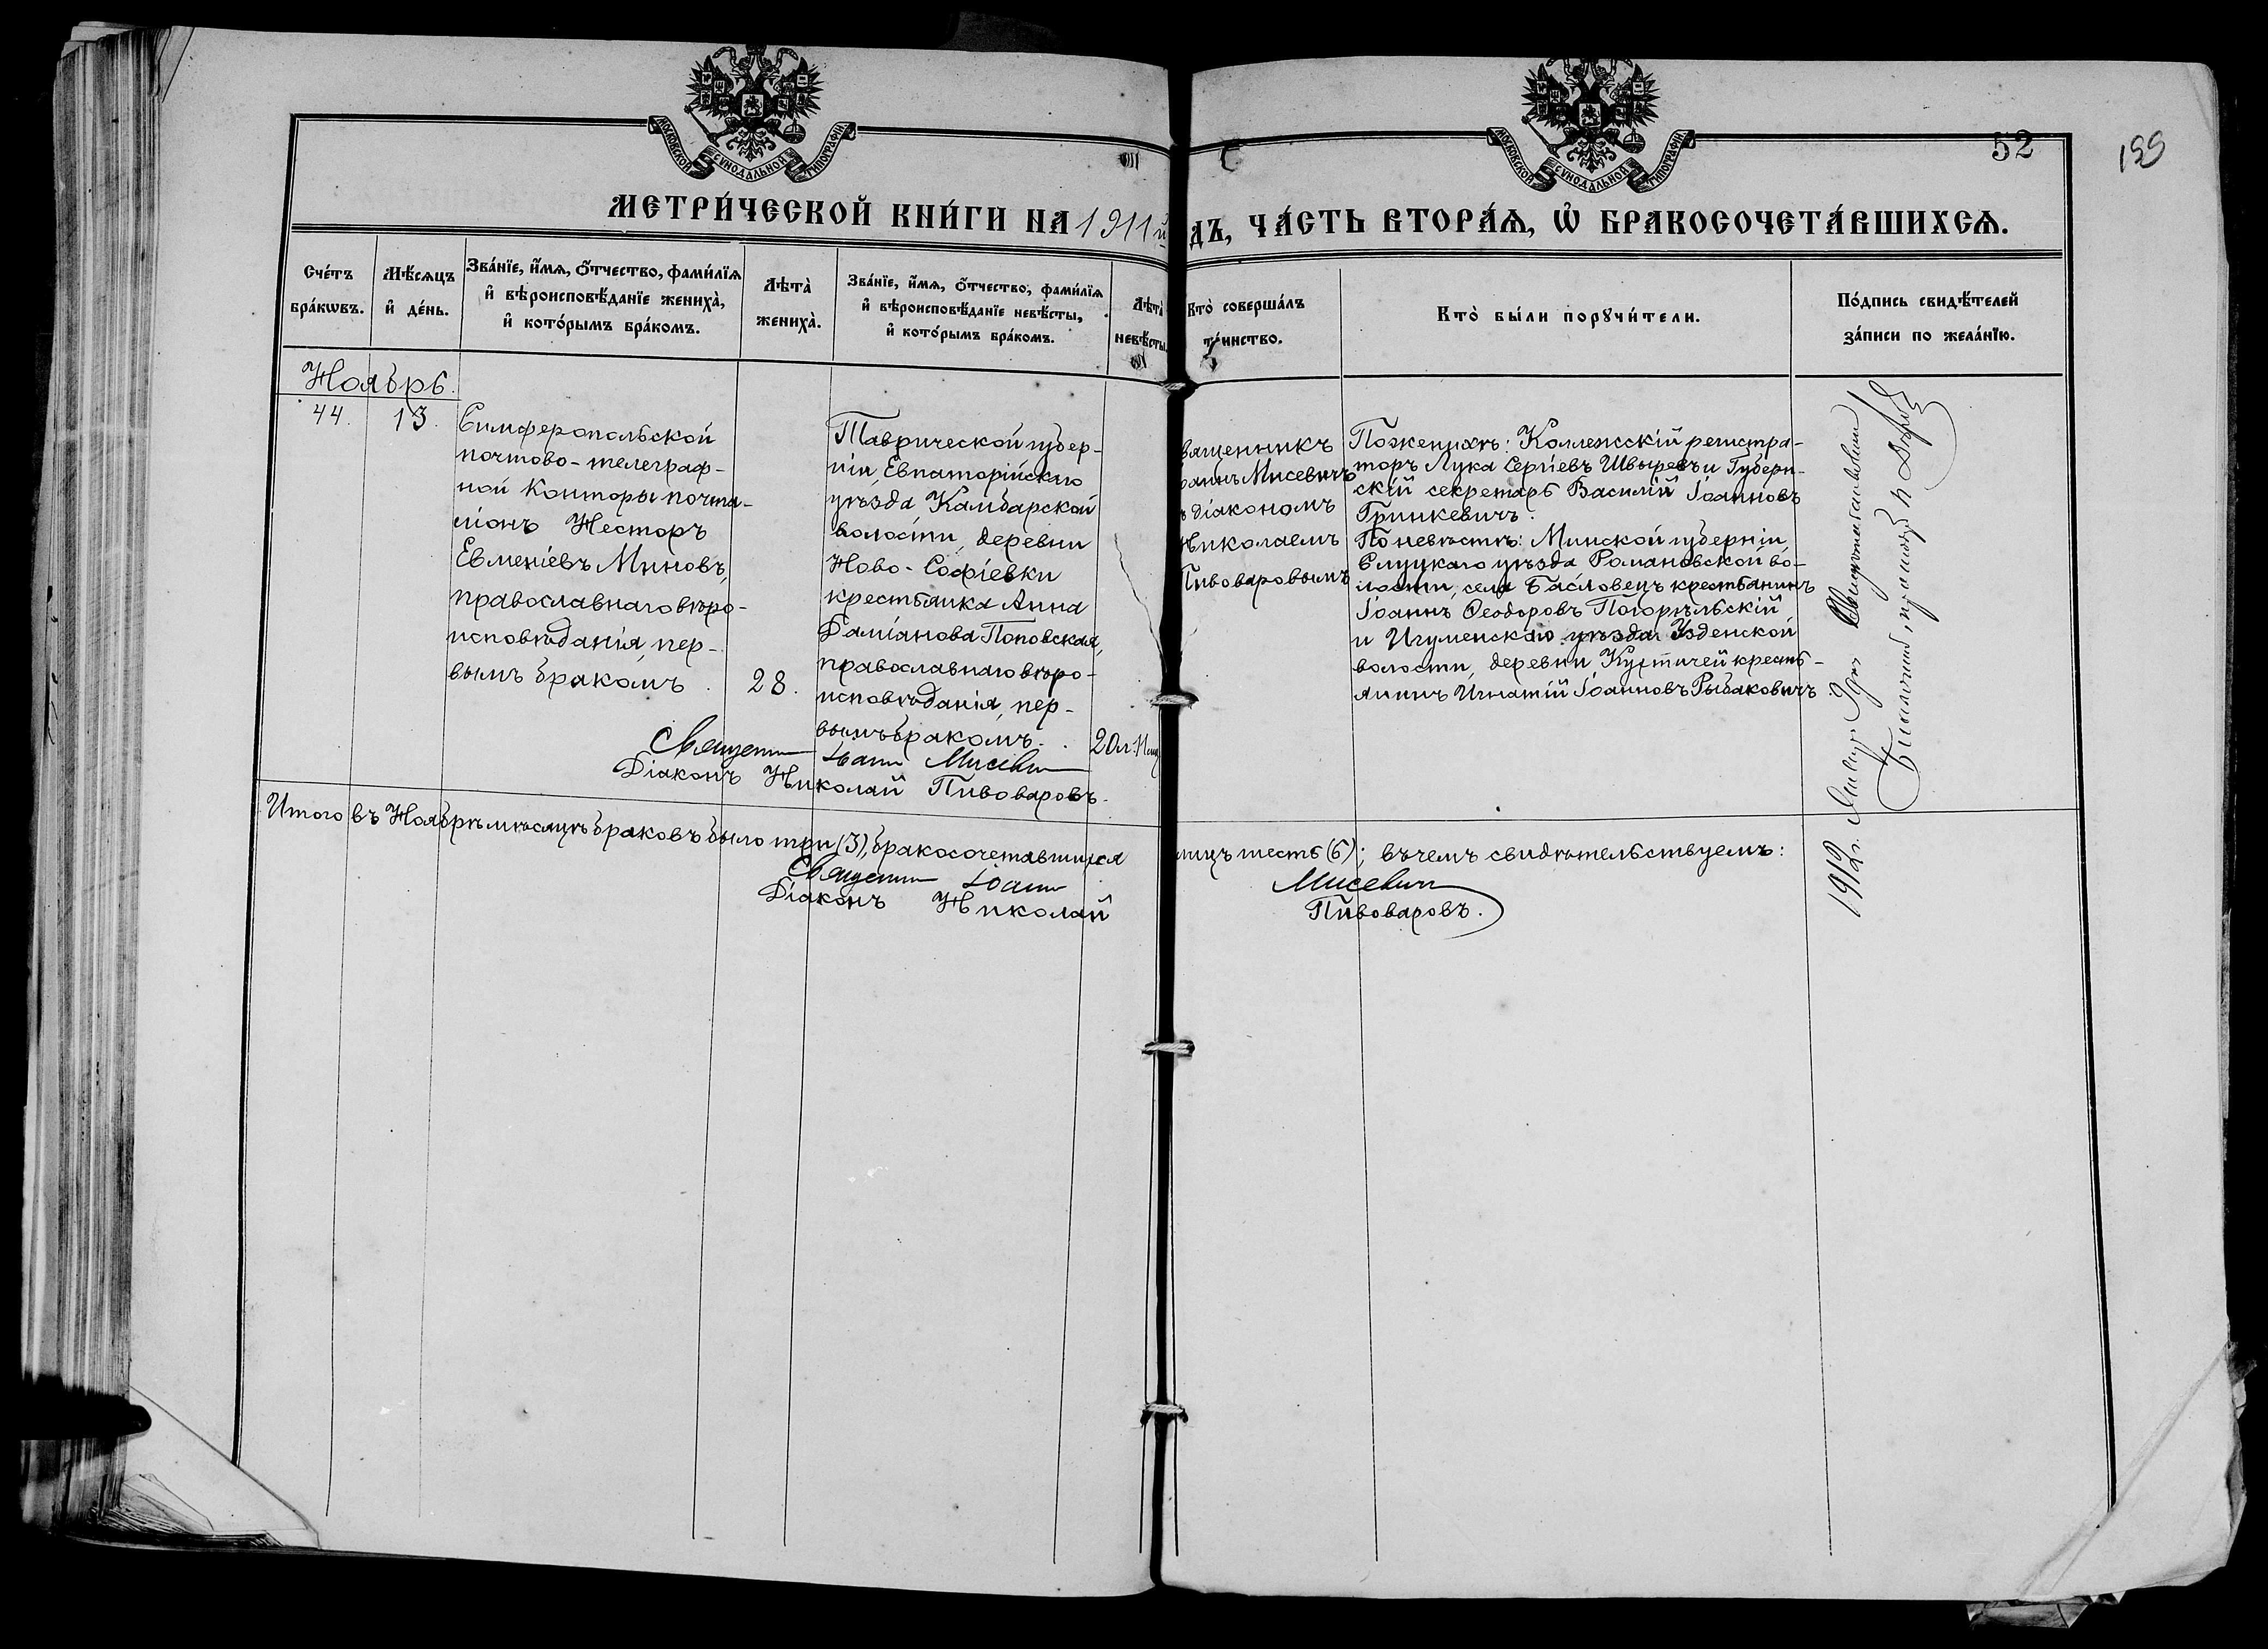 МОСКОВСКОЙ СѴНОДАЛЬНОЙ ТИПОГРАФІИ
МОСКОВСКОЙ СѴНОДАЛЬНОЙ ТИПОГРАФІИ
52
199
МЕТРИ́ЧЕСКОЙ КНИ́ГИ НА 1911й
ДЪ, ЧА́СТЬ ВТОРА́Ѧ, Ѡ҆ БРАКОСОЧЕТА́ВШИХСѦ.
Сче́тъ
бра́кѡвъ.
Мѣ́сѧцъ
и҆ де́нь.
Зва́нїе, и҆́мѧ, ѻ҆́тчество, фами́лїѧ
и҆ вѣроисповѣ́данїе жениха̀,
и҆ кото́рымъ бра́комъ.
Лѣта̀
жениха̀.
Зва́нїе, и҆́мѧ, ѻ҆́тчество, фами́лїѧ
и҆ вѣроисповѣ́данїе невѣ́сты,
и҆ кото́рымъ бра́комъ.
Лѣта̀
невѣ́сты.
Кто̀ соверша́лъ
та́инство.
Кто̀ бы́ли порꙋчи́тели.
По́дпись свидѣ́телей
за́писи по жела́нїю.
Ноябрь.
44.
13.
Симферопольской
почтово-телеграф-
ной Конторы почта-
ліонъ Несторъ
Евменіевъ Миновъ,
православнаго вѣро-
исповѣданія, пер-
вымъ бракомъ.
28.
Таврической губер-
ніи, Евпаторійскаго
уѣзда Камбарской
волости, деревни
Ново-Софіевки
крестьянка Анна
Даміанова Поповская,
православнаго вѣро-
исповѣданія, пер-
вымъ бракомъ.
20 л.
вященникъ
оаннъ Мисевичъ
ъ діакономъ
Николаемъ
Пивоваровымъ
По женихѣ: Коллежскій регистра-
торъ Лука Сергіевъ Швыревъ и Губерн-
скій секретарь Василій Іоанновъ
Гринкевичъ.
По невѣстѣ: Минской губерніи,
Слуцкаго уѣзда Романовской во-
лости, села Басловецъ крестьянинъ
Іоаннъ Ѳеодоровъ Погорѣльскій
и Игуменскаго уѣзда Узденской
волости, деревни Кустичей кресть-
янинъ Игнатій Іоанновъ Рыбаковичъ.
Священникъ Іоаннъ Мисевичъ
Діаконъ Николай Пивоваровъ.
Итого въ Ноябрѣ мѣсяцѣ браковъ было три (3), бракосочетавшихся
лицъ шесть (6); въ чемъ свидѣтельствуемъ:
Священникъ Іоаннъ Мисевичъ
Діаконъ Николай Пивоваровъ.
1912 г.